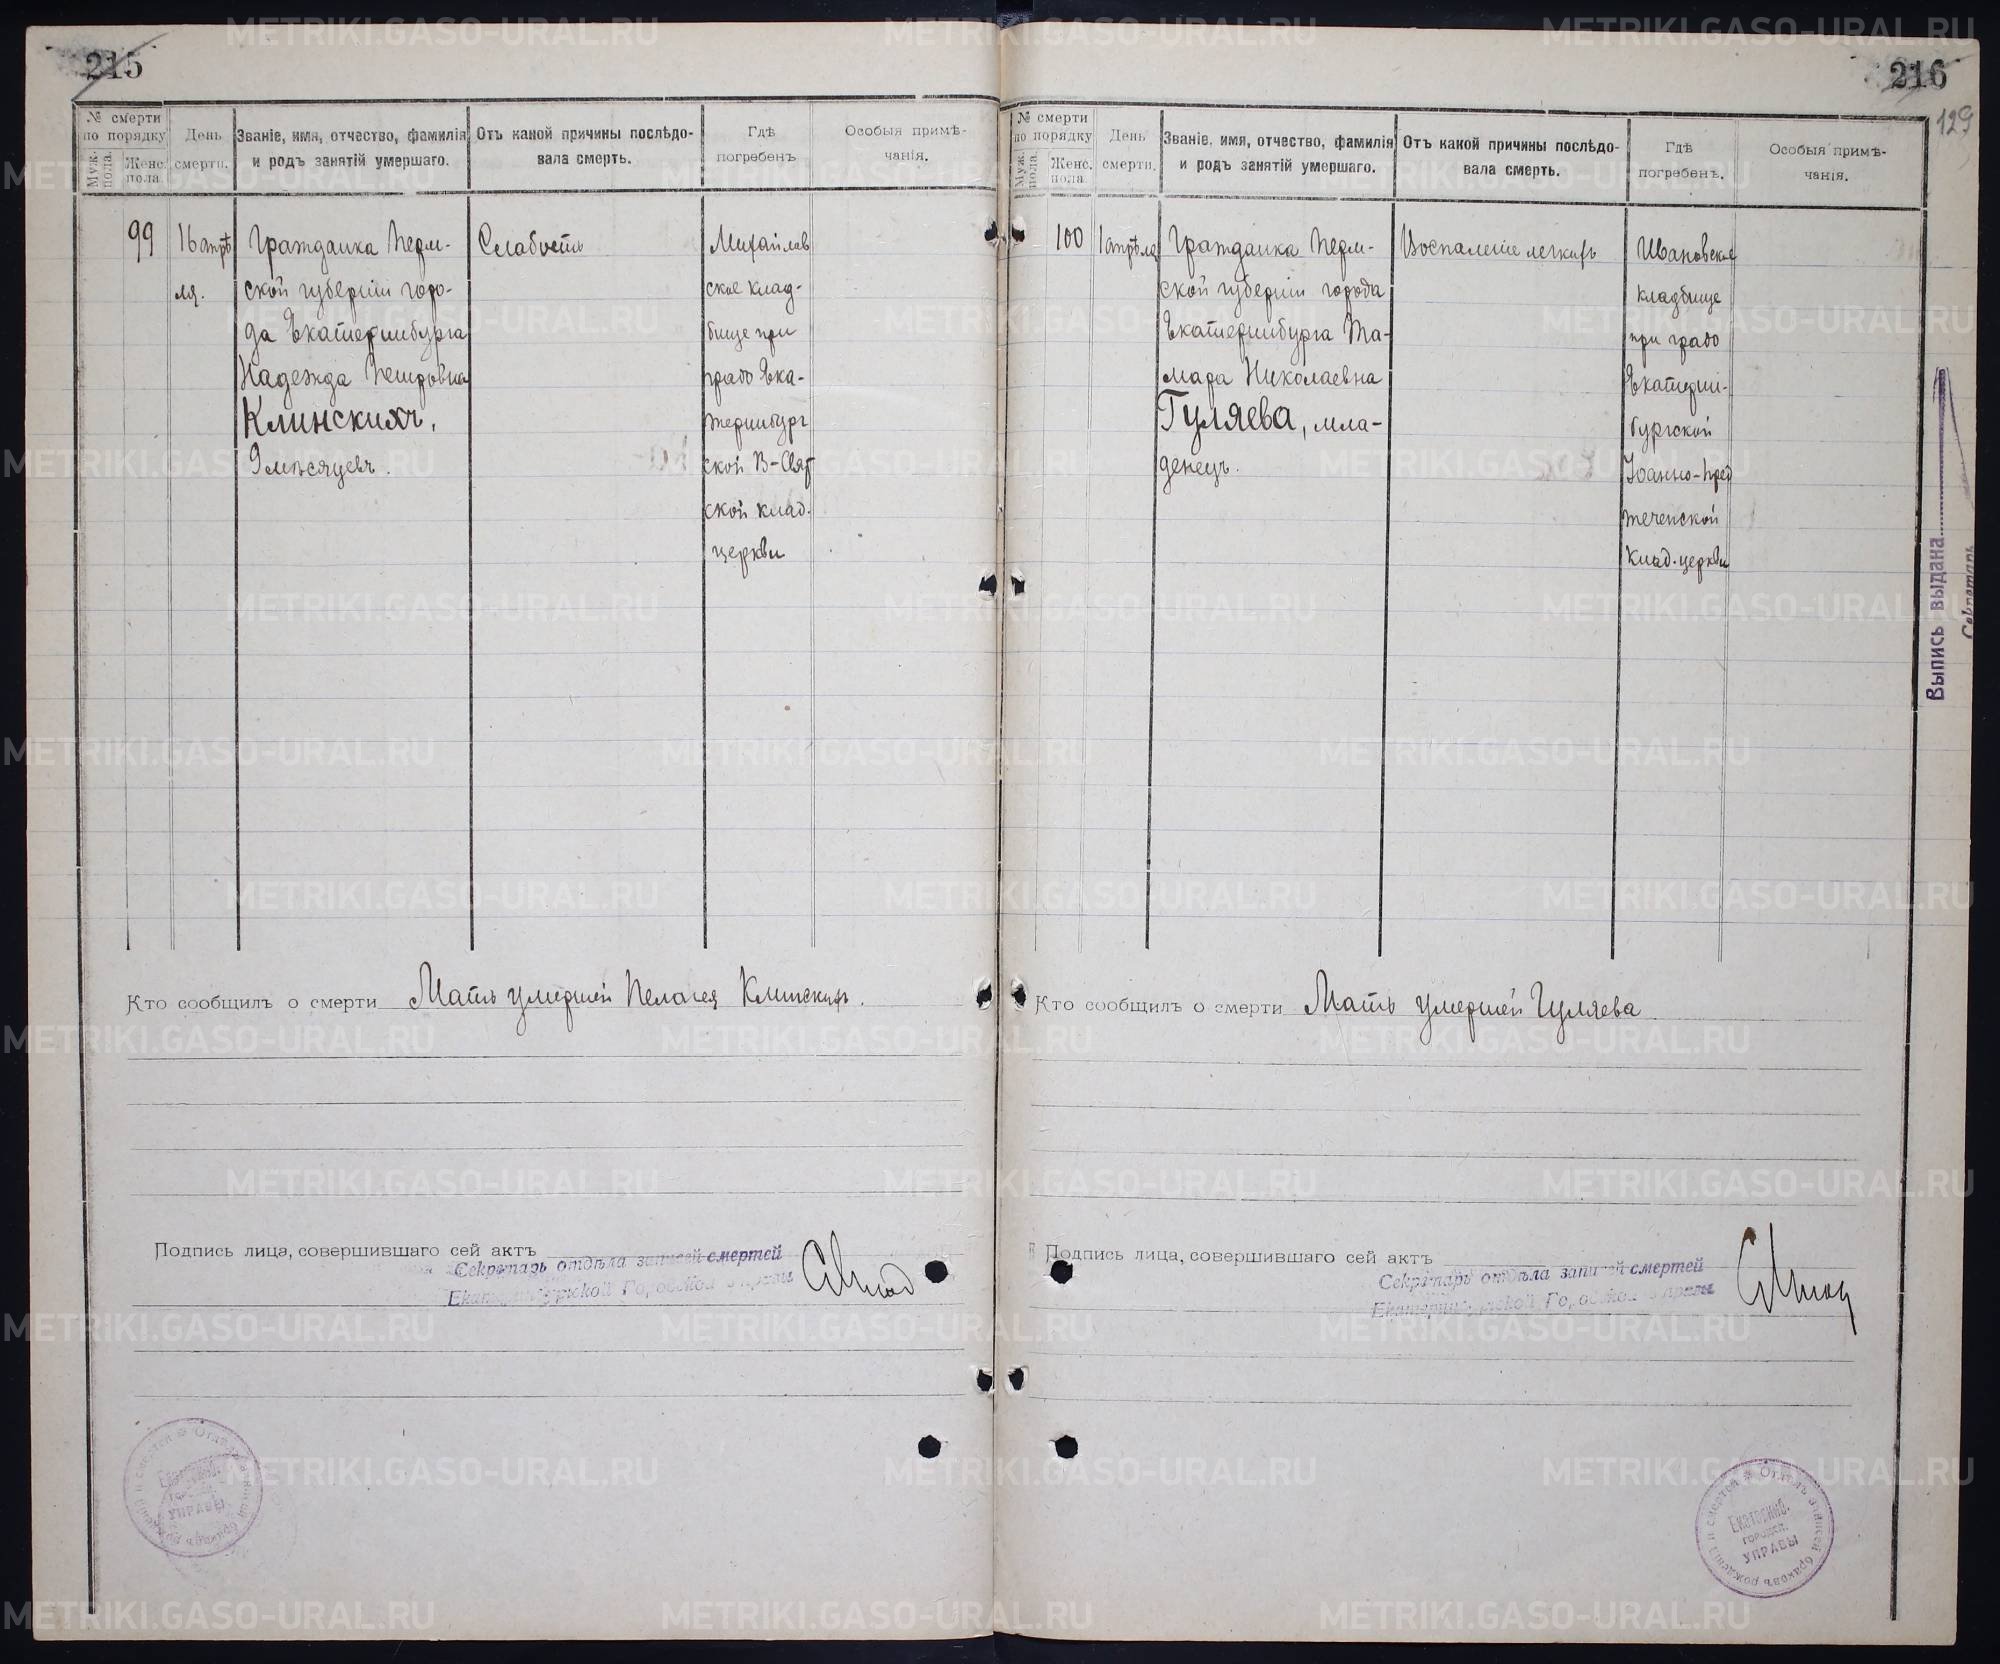 215
№ смерти по порядку
Муж. пола.
Женс. пола.
День смерти.
Званіе, имя, отчество, фамилія и родъ занятій умершаго.
Отъ какой причины послѣдовала смерть.
Гдѣ погребенъ
Особыя примѣчанія.
99
16 апрѣ
ля.
Гражданка Перм-
ской губерніи горо-
да Екатеринбурга
Надежда Петровна
Клинскихъ,
9 мѣсяцевъ.
Слабость
Михайлов
ское клад-
бище при
градо Ека-
теринбург
ской В-Свят
ской клад.
церкви
Кто сообщилъ о смерти Мать умершей Пелагея Клинскихъ.
Подпись лица, совершившаго сей актъ
Секретарь отдѣла записей смертей
Екатеринбургской Городской Управы
Екатеринб.
городск.
УПРАВЫ
216
129
№ смерти по порядку
Муж. пола.
Женс. пола.
День смерти.
Званіе, имя, отчество, фамилія и родъ занятій умершаго.
Отъ какой причины послѣдовала смерть.
Гдѣ погребенъ.
Особыя примѣчанія.
100
1 апрѣля
Гражданка Перм-
ской губерніи города
Екатеринбурга Та-
мара Николаевна
Гуляева, мла-
денецъ.
Воспаленіе легкихъ
Ивановское
кладбище
при градо
Екатерин-
бургской
Іоанно-Пред
теченской
клад. церкви
Выпись выдана
Секретарь
Кто сообщилъ о смерти Мать умершей Гуляева
Подпись лица, совершившаго сей актъ
Секретарь отдѣла записей смертей
Екатеринбургской Городской Управы
Отдѣлъ записей браковъ рожденій и смертей
Екатеринб.
городск.
УПРАВЫ
METRIKI.GASO-URAL.RU